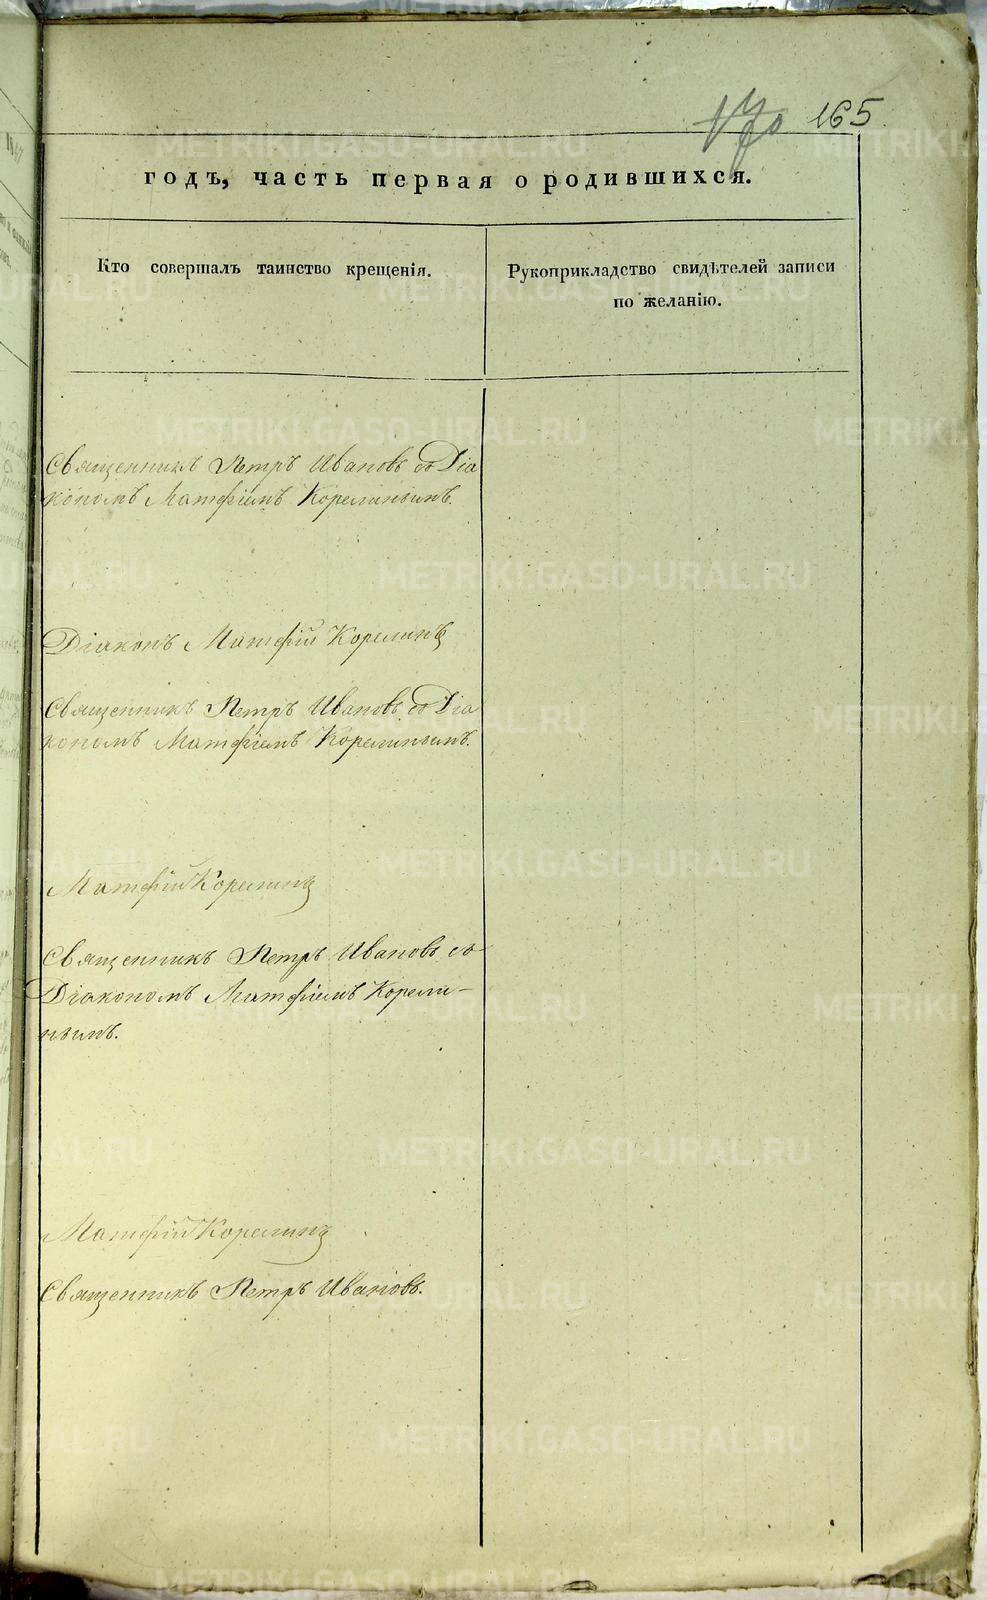 170 165
годъ, часть первая о родившихся.
Кто совершалъ таинство крещенія.
Рукоприкладство свидѣтелей записи
по желанію.
Священникъ Петръ Ивановъ съ Діа
кономъ Матфіемъ Корелинымъ.
Діаконъ Матфій Корелинъ
Священникъ Петръ Ивановъ съ Діа
кономъ Матфіемъ Корелинымъ.
Матфій Корелинъ
Священникъ Петръ Ивановъ съ
Діакономъ Матфіемъ Корели-
нымъ.
Матфій Корелинъ
Священникъ Петръ Ивановъ.
METRIKI.GASO-URAL.RU